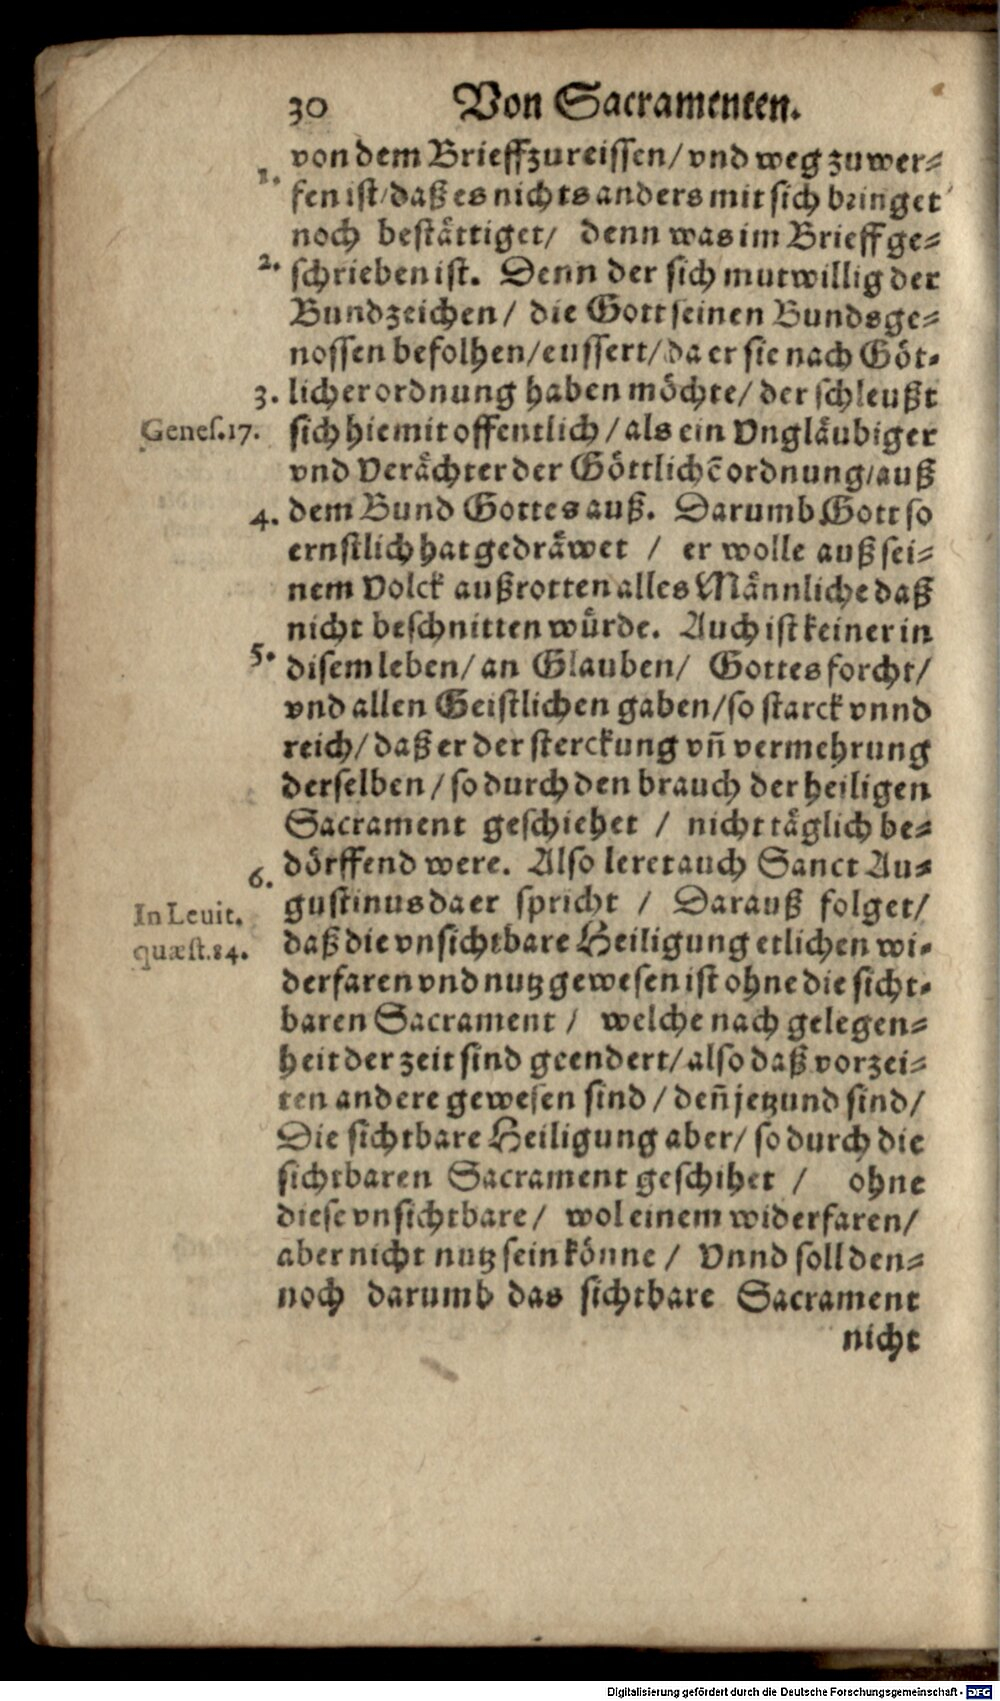 30 Von Sacramenten.
von dem Brieff zureissen/ vnd weg zuwer-
1. fen ist/ daß es nichts anders mit sich bringet
noch bestättiget/ denn was im Brieff ge-
2. schrieben ist. Denn der sich mutwillig der
Bundzeichen/ die Gott seinen Bundsge-
nossen befolhen/ eussert/ da er sie nach Göt-
3. licher ordnung haben möchte/ der schleußt
Genes.17. sich hiemit offentlich/ als ein Vngläubiger
vnd Verächter der Göttlichē ordnung/ auß
4. dem Bund Gottes auß. Darumb Gott so
ernstlich hat gedräwet / er wolle auß sei-
nem Volck außrotten alles Männliche daß
nicht beschnitten würde. Auch ist keiner in
5. disem leben/ an Glauben/ Gottes forcht/
vnd allen Geistlichen gaben/ so starck vnnd
reich/ daß er der sterckung vñ vermehrung
derselben/ so durch den brauch der heiligen
Sacrament geschiehet / nicht täglich be-
6. dörffend were. Also leret auch Sanct Au-
In Leuit. gustinus da er spricht / Darauß folget/
quæst.84. daß die vnsichtbare Heiligung etlichen wi-
derfaren vnd nutz gewesen ist ohne die sicht-
baren Sacrament / welche nach gelegen-
heit der zeit sind geendert/ also daß vorzei-
ten andere gewesen sind/ deñ jetzund sind/
Die sichtbare Heiligung aber/ so durch die
sichtbaren Sacrament geschihet / ohne
diese vnsichtbare/ wol einem widerfaren/
aber nicht nutz sein könne / Vnnd soll den-
noch darumb das sichtbare Sacrament
nicht
Digitalisierung gefördert durch die Deutsche Forschungsgemeinschaft - DFG